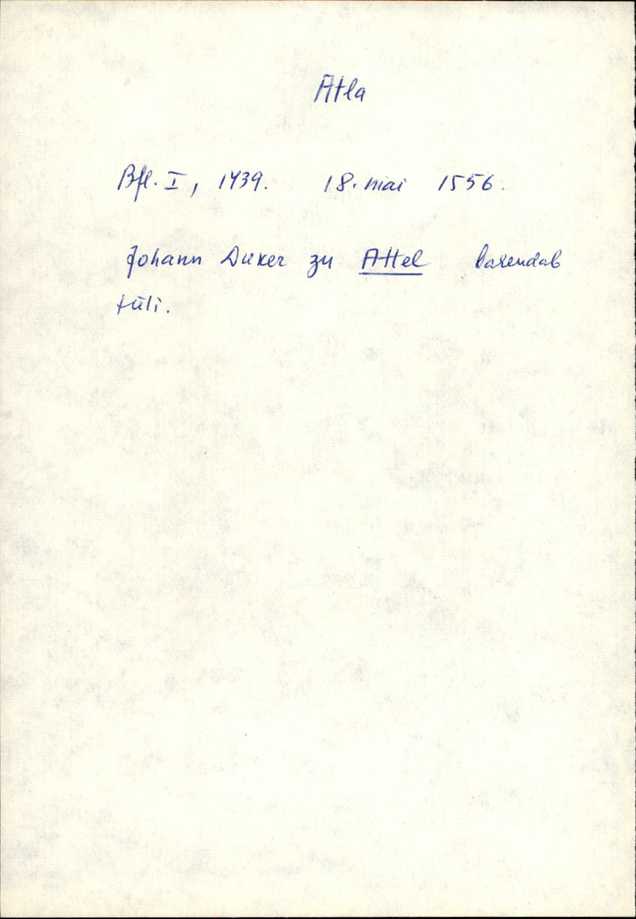 Atla
Bfl. I, 1439. 18. mai 1556.
Johann Duker zu Attel lasendab
tüli.